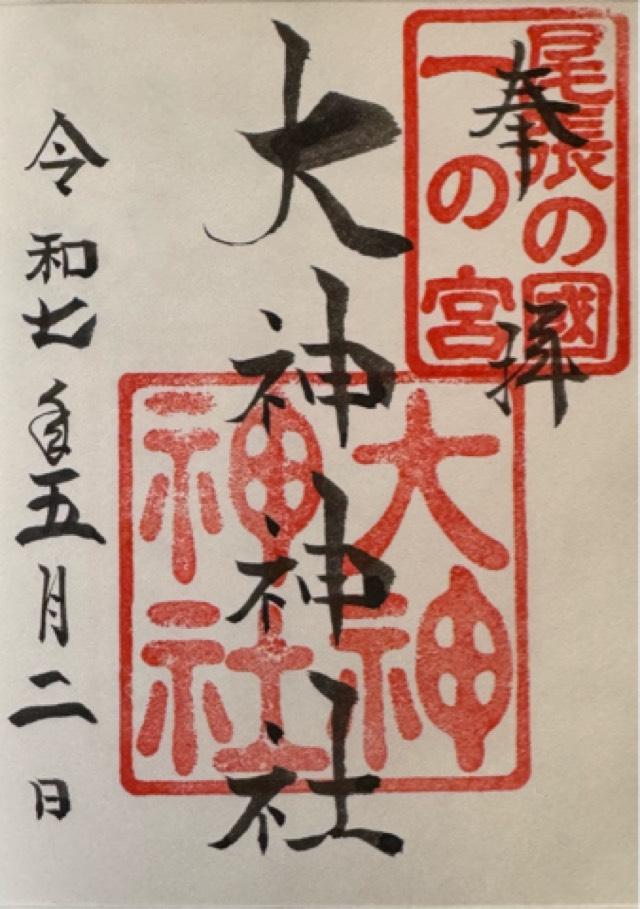 奉拝
尾張の國
一の宮
大神神社
大神
神社
令和七年五月二日